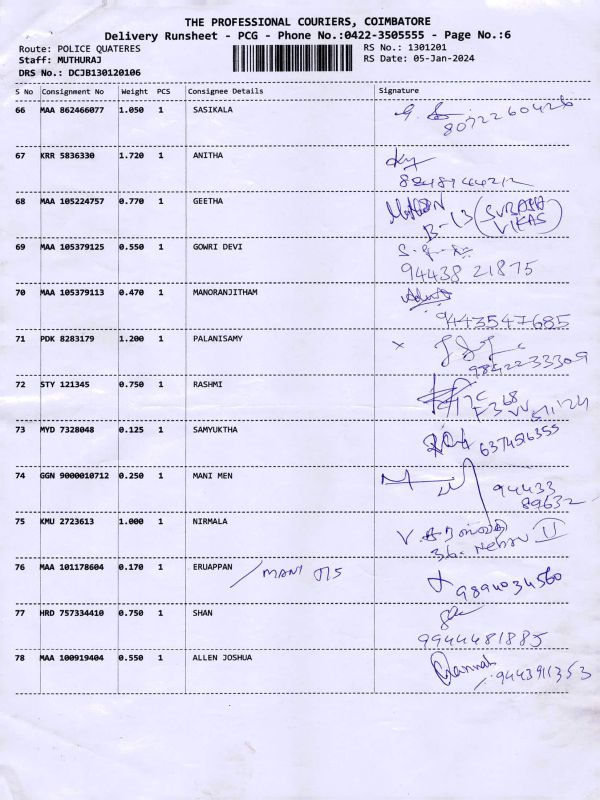 THE PROFESSIONAL COURIERS, COIMBATORE
Delivery Runsheet - PCG - Phone No.:0422-3505555 - Page No.:6
Route: POLICE QUATERES RS No.: 1301201
Staff: MUTHURAJ RS Date: 05-Jan-2024
DRS No.: DCJB130120106
S No Consignment No Weight PCS Consignee Details Signature
66 MAA 862466077 1.050 1 SASIKALA
8072260426
67 KRR 5836330 1.720 1 ANITHA
68 MAA 105224757 0.770 1 GEETHA
B-13 (SURAHA VIKAS)
69 MAA 105379125 0.550 1 GOWRI DEVI
94438 21875
70 MAA 105379113 0.470 1 MANORANJITHAM
9443547685
71 PDK 8283179 1.200 1 PALANISAMY
9842233309
72 STY 121345 0.750 1 RASHMI
73 MYD 7328048 0.125 1 SAMYUKTHA
6374516355
74 GGN 9000010712 0.250 1 MANI MEN
94433
89632
75 KMU 2723613 1.000 1 NIRMALA
76 MAA 101178604 0.170 1 ERUAPPAN MANI
9894034560
77 HRD 757334410 0.750 1 SHAN
9944481885
78 MAA 100919404 0.550 1 ALLEN JOSHUA
9443911353